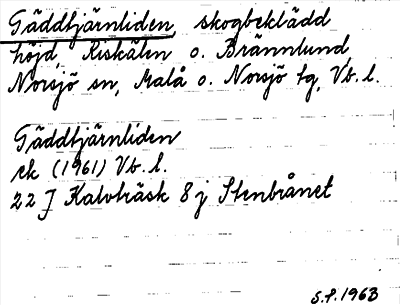 Gäddtjärnliden, skogbeklädd
höjd, Riskälen o. Brännlund,
Norsjö sn, Malå o. Norsjö tg, Vb. l.
Gäddtjärnliden
ek (1961) Vb. l.
22 J Kalvträsk 8 j Stenbrånet
S.P. 1963